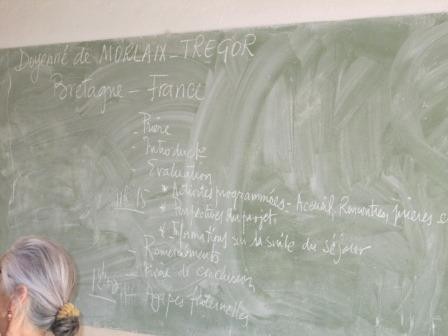 Doyenné de MORLAIX - TREGOR
Bretagne - France
- Prière
- Introduct
- Evaluation
* Activités programmées - Accueil, Rencontres, prières
* Perspectives du projet
* Informations sur la suite du séjour
- Remerciements
- Prière de conclusion
- Agapes fraternelles